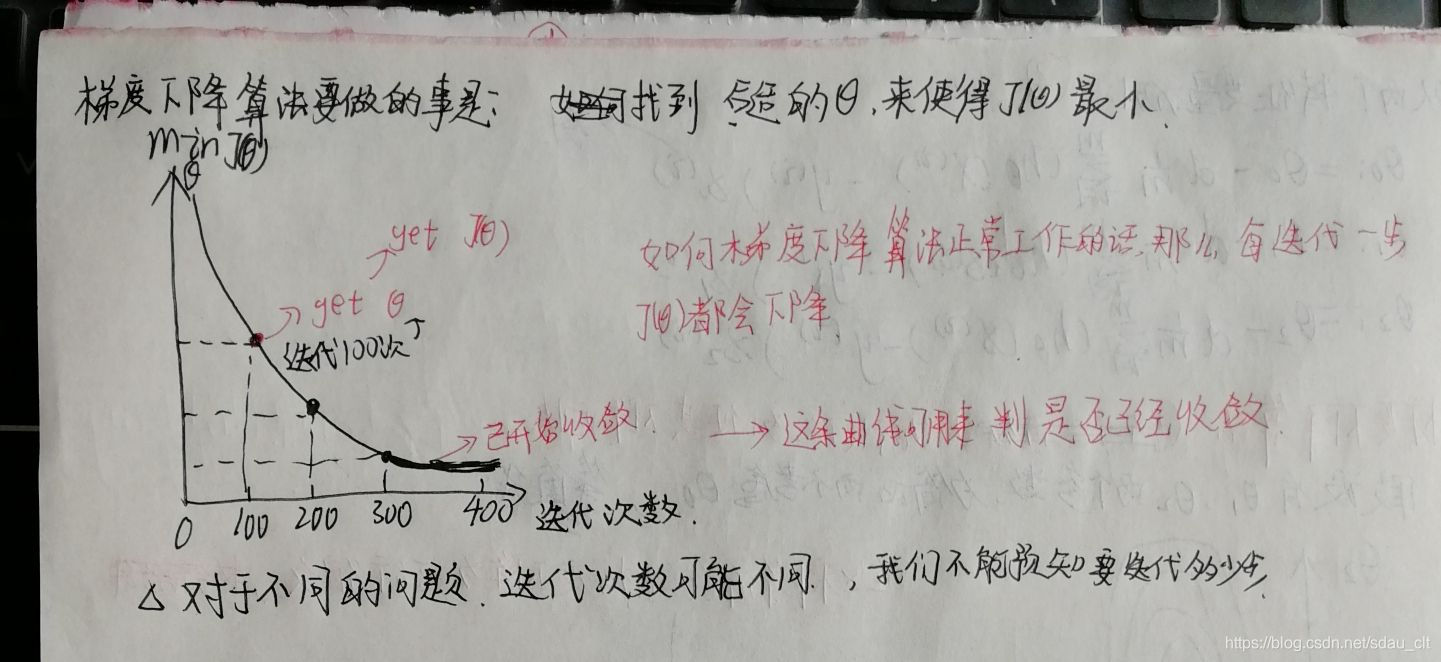 梯度下降算法要做的事是: 找到合适的θ,来使得J(θ)最小.
min J(θ)
θ
get J(θ)
get θ
迭代100次
如何梯度下降算法正常工作的话,那么,每迭代一步
J(θ)都会下降.
已开始收敛.
→ 这条曲线可用来判是否已经收敛.
0 100 200 300 400 迭代次数.
△ 对于不同的问题.迭代次数可能不同.,我们不能预知要迭代多少步.
https://blog.csdn.net/sdau_clt